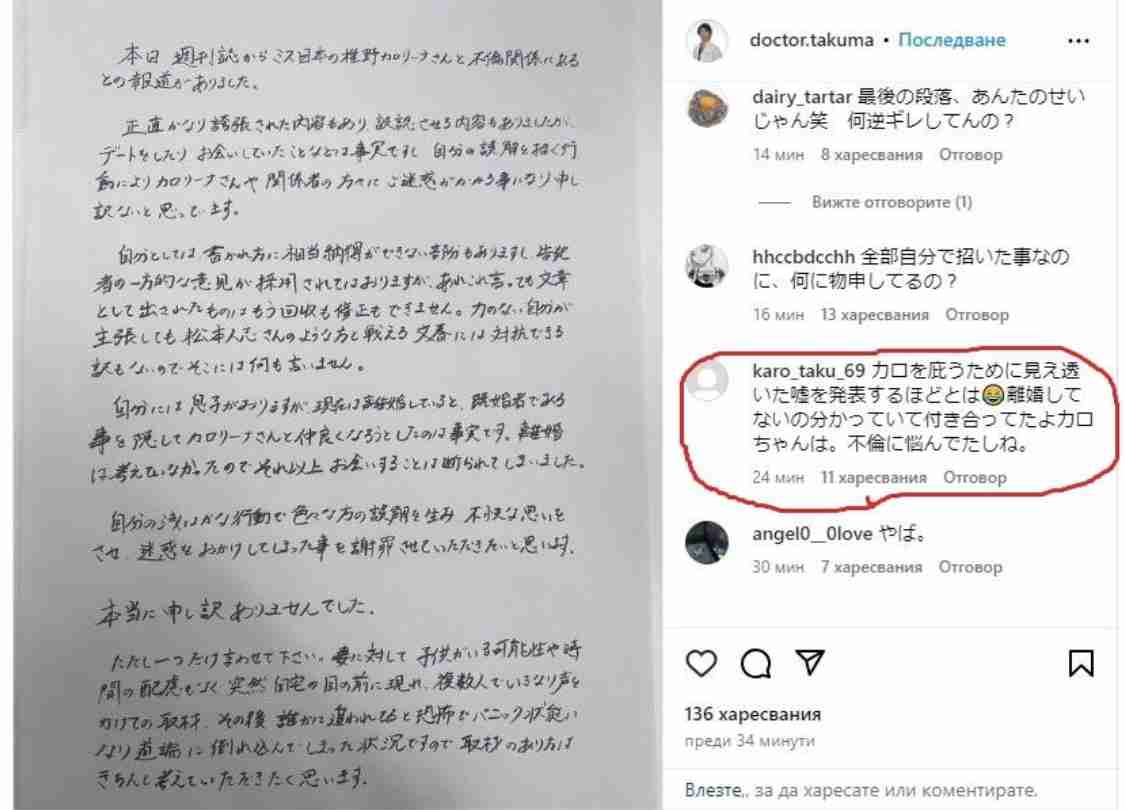 本日 週刊誌からミス日本の椎野カロリーナさんと不倫関係にある
との報道がありました。
正直かなり誇張された内容もあり 誤認させる内容もありましたが、
デートをしたり お会いしていたことなどは事実ですし 自分の誤解を招く行
為によりカロリーナさんや関係者の方々にご迷惑がかかる事になり申し
訳ないと思っています。
自分としては書かれ方に相当納得ができない部分もありますし 告発
者の一方的な意見が採用されてはおりますが、あれこれ言っても文章
として出されたものはもう回収も修正もできません。力のない自分が
主張しても松本人志さんのような方と戦える文春には対抗できる
訳もないのでそこには何も言いません。
自分には息子がおりますが、現在は離婚していると、既婚者である
事を隠してカロリーナさんと仲良くなろうとしたのは事実です。離婚
は考えていなかったのでそれ以上お会いすることは断られてしまいました。
自分の浅はかな行動で色々な方の誤解を生み 不快な思いを
させ 迷惑をおかけしてしまった事を謝罪させていただきたいと思います。
本当に申し訳ありませんでした。
ただし一つだけ言わせて下さい。妻に対して 子供がいる可能性や時
間の配慮もなく 突然自宅の目の前に現れ、複数人でいきなり声を
かけての取材、その後 誰かに追われてると恐怖でパニック状態に
なり道端に倒れ込んでしまった状況ですので取材のあり方は
きちんと考えていただきたく思います。
doctor.takuma • Последване
dairy_tartar 最後の段落、あんたのせい
じゃん笑　何逆ギレしてんの？
14 мин 8 харесвания Отговор
Вижте отговорите (1)
hhccbdcchh 全部自分で招いた事なの
に、何に物申してるの？
16 мин 13 харесвания Отговор
karo_taku_69 カロを庇うために見え透
いた嘘を発表するほどとは😂離婚して
ないの分かっていて付き合ってたよカロ
ちゃんは。不倫に悩んでたしね。
24 мин 11 харесвания Отговор
angel0__0love やば。
30 мин 7 харесвания Отговор
136 харесвания
преди 34 минути
Влезте,, за да харесате или коментирате.